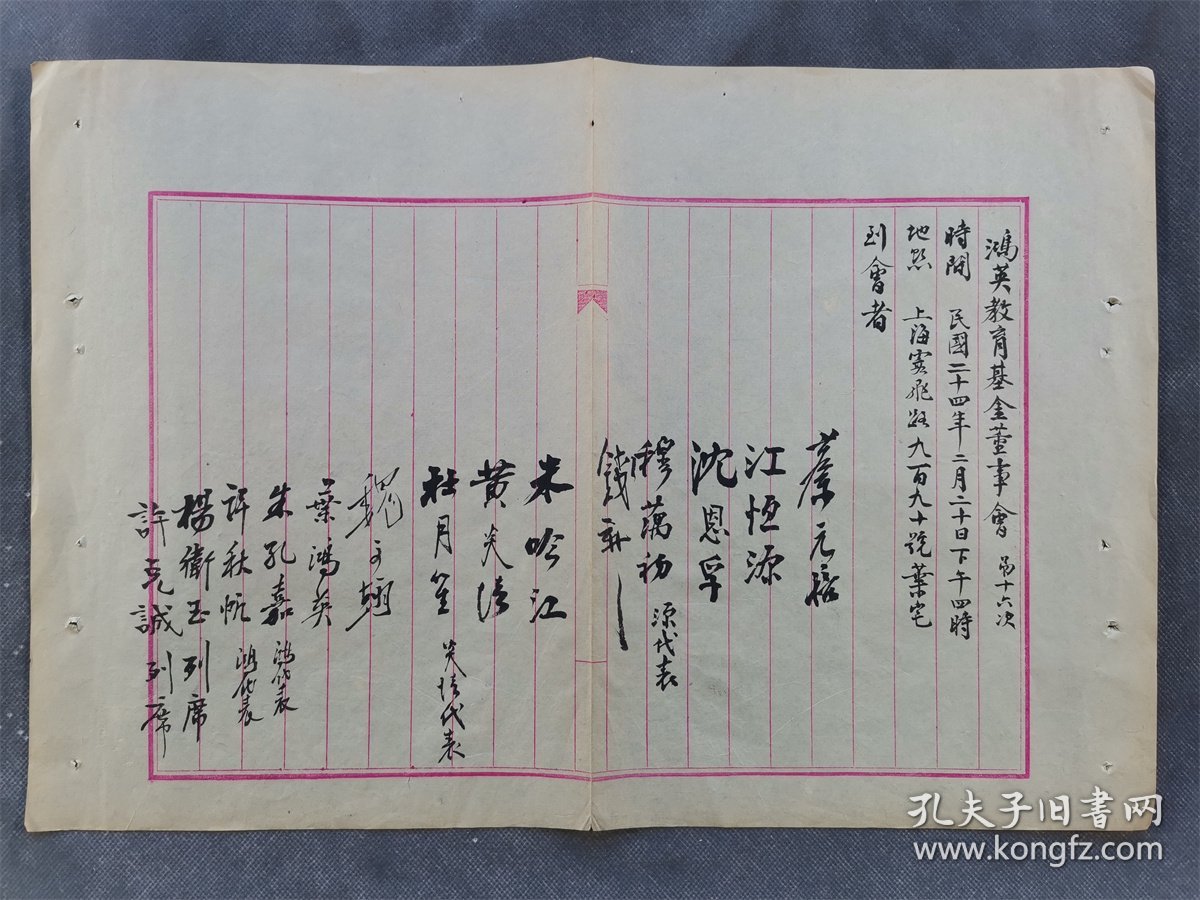 鴻英教育基金董事會 第十六次
時間 民國二十四年二月二十日下午四時
地點 上海霞飛路九百九十號葉宅
到會者
蔡元培
江恆源
沈恩孚
穆藕初 源代表
錢新之
朱吟江
黃炎培
杜月笙 炎培代表
魏文翰
葉鴻英
朱孔嘉 鴻代表
許秋帆 鴻代表
楊衛玉列席
許克誠列席
孔夫子旧書网
www.kongfz.com